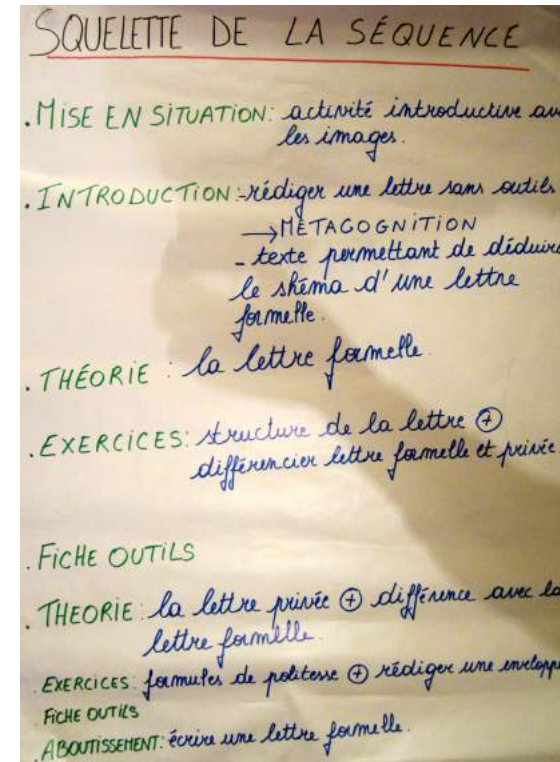 SQUELETTE DE LA SÉQUENCE
. MISE EN SITUATION: activité introductive
les images.
. INTRODUCTION: -rédiger une lettre sans outils
→ MÉTACOGNITION
- texte permettant de déduire
le shéma d'une lettre
formelle.
. THÉORIE : la lettre formelle.
. EXERCICES: structure de la lettre ⊕
différencier lettre formelle et privée.
. FICHE OUTILS
. THEORIE: la lettre privée ⊕ différence avec la
lettre formelle.
. EXERCICES: formules de politesse ⊕ rédiger une enveloppe
FICHE OUTILS
. ABOUTISSEMENT: écrire une lettre formelle.